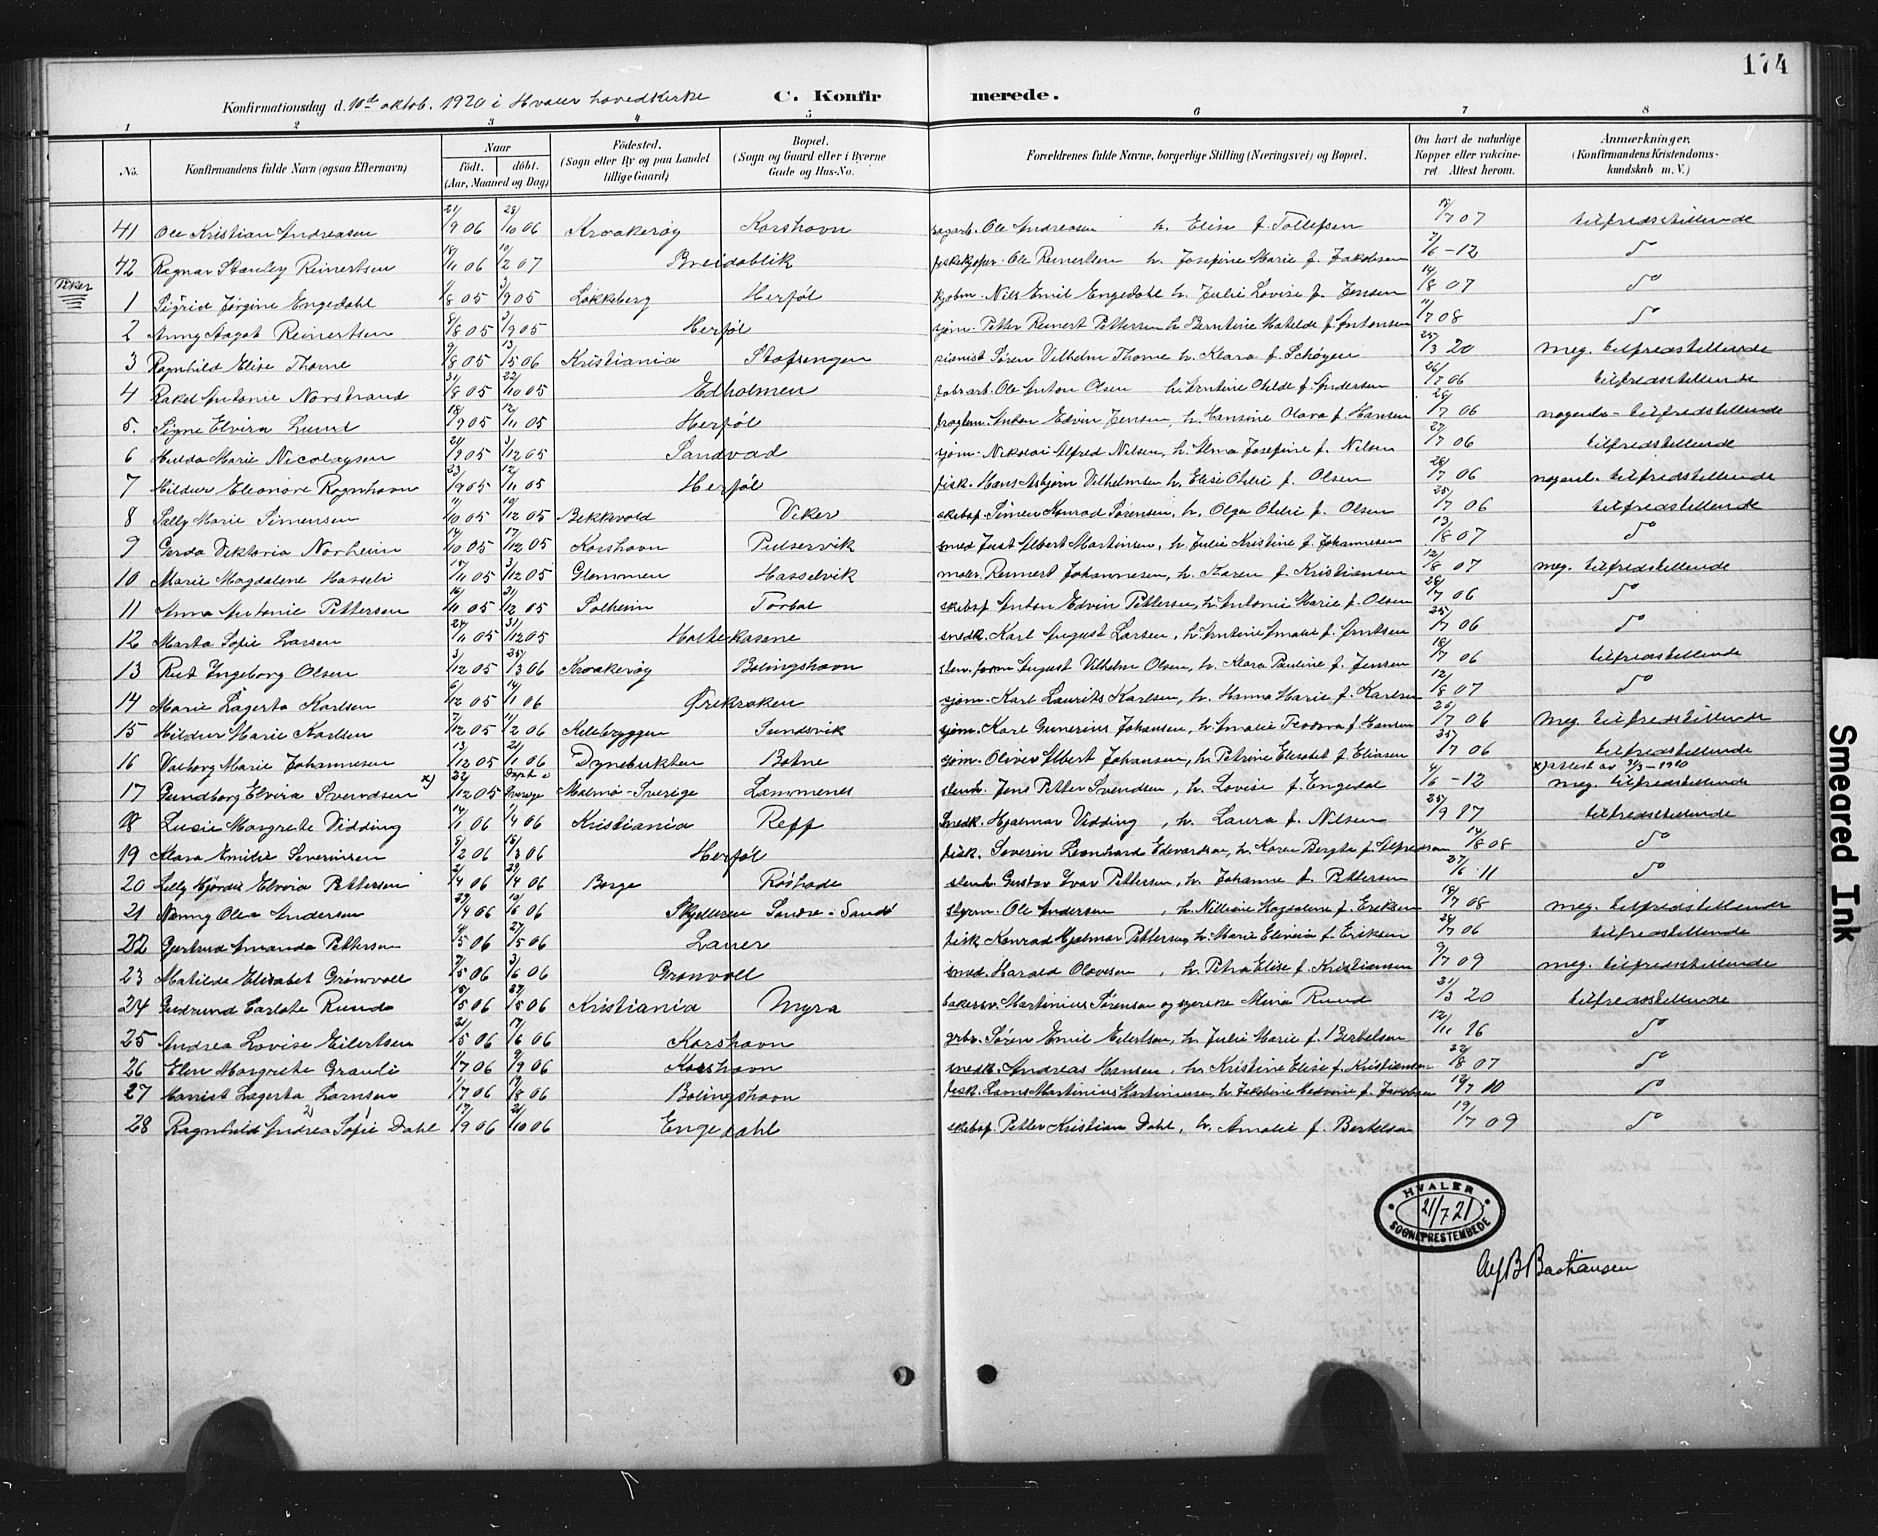 174
Konfirmationsdag d. 10de oktob. 1920 i Hvaler hovedkirke C. Konfirmerede.
1 2 3 4 5 6 7 8
No. Konfirmandens fulde Navn (ogsaa Efternavn) Naar födt. döbt. (Aar, Maaned og Dag) Födested. (Sogn eller By og paa Landet tillige Gaard) Bopæl. (Sogn og Gaard eller i Byerne Gade og Hus-No. Forældrenes fulde Navne, borgerlige Stilling (Næringsvei) og Bopæl. Om havt de naturlige Kopper eller vakcineret. Attest herom. Anmærkninger, (Konfirmandens Kristendomskundskab m. V.)
41 Ole Kristian Andreasen 21/9 06 28/10 06 Kraakerøy Korshavn sagarb. Ole Andreasen h. Elise f. Tollefsen 18/7 07 tilfredsstillende
42 Ragnar Stanley Reinertsen 18/11 06 10/2 07 Breidablik fiskekjøper Ole Reinertsen h. Josefine Marie f. Jakobsen 7/6 - 12 do
Piker
1 Sigrid Jørgine Engedahl 1/8 05 3/9 05 Løkkeberg Herføl kjøbm. Nils Emil Engedahl h. Julie Lovise f. Jensen 14/8 07 do
2 Anny Aagot Reinertsen 8/8 05 3/9 05 Herføl sjøm. Petter Reinert Pettersen h. Berntine Matilde f. Antonsen 11/7 08 do
3 Ragnhild Elise Thorne 9/8 05 13/5 06 Kristiania Stafsengen pianist Søren Vilhelm Thorne h. Klara f. Schøyen 25/3 20 meg. tilfredsstillende
4 Rakel Antonie Norstrand 31/8 05 22/10 05 Edholmen fabr.arb. Ole Anton Olsen h. Arntine Otilde f. Andersen 26/7 06 tilfredsstillende
5. Signe Elvira Lund 18/9 05 12/11 05 Herføl fragtem. Anton Edvin Jensen, h. Hansine Olava f. Hansen 26/7 06 nogenl. tilfredsstillende
6 Hulda Marie Nicolaysen 21/9 05 3/12 05 Sandvad sjøm. Nikolai Alfred Nilsen, h. Alma Josefine f. Nilsen 27/7 06 tilfredsstillende
7 Hildur Eleonore Rognhavn 23/9 05 12/11 05 Herføl fisk. Hans Asbjørn Vilhelmsen h. Elise Otilie f. Olsen 26/7 06 nogenl. tilfredsstillende
8 Sally Marie Simensen 11/10 05 10/12 05 Bekkevold Viker skibsf. Simen Konrad Sørensen, h. Olga Otilie f. Olsen 25/7 06 tilfredsstillende
9 Gerda Viktoria Norheim 14/10 05 17/12 05 Korshavn Pulservik smed Just Albert Martinsen, h. Julie Kristine f. Johannesen 13/8 07 do
10 Marie Magdalene Hasseli 15/11 05 3/12 05 Glommen Hasselvik maler. Reinert Johannesen, h. Karen f. Kristiansen 12/8 07 meg. tilfredsstillende
11 Anna Antonie Pettersen 16/11 05 31/12 05 Solheim Torbal skibsf. Anton Edvin Pettersen, h. Antonie Marie f. Olsen 26/7 06 do
12 Marta Sofie Larsen 24/11 05 31/12 05 Holtekasene snedk. Karl August Larsen, h. Arntine Amalie f. Arntsen 25/7 06 do
13 Rut Ingeborg Olsen 3/12 05 25/3 06 Kraakerøy Bølingshavn sten.form August Vilhelm Olsen, h. Klara Pauline f. Jensen 18/7 06 tilfredsstillende
14 Marie Lagerta Karlsen 6/12 05 14/1 06 Ørekroken sjøm. Karl Laurits Karlsen, h. Hanna Marie f. Karlsen 12/8 07 do
15 Hildur Marie Karlsen 7/12 05 11/2 06 Kilebryggen Sundsvik sjøm. Karl Gunerius Johansen, h. Amalie Teodora f. Hansen 25/7 06 meg. tilfredsstillende
16 Valborg Marie Johannesen 13/12 05 21/1 06 Dynebukten Botne sjøm. Oliver Albert Johansen, h. Petrine Elisabet f. Eliasen 25/7 06 tilfredsstillende
17 Gundborg Elvira Svendsen x) 22/12 05 Døpt i Sverige Malmø - Sverige Lammenes stenh. Jens Petter Svendsen, h. Lovise f. Engedal 4/6 - 12 x) attest av 3/3 - 1920 meg. tilfredsstillende
18 Lucie Margrete Vidding 14/1 06 1/4 06 Kristiania Reff Snedk. Hjalmar Vidding, h. Laura f. Nilsen 25/9 17 tilfredsstillende
19 Klara Emilie Severinsen 8/2 06 18/3 06 Herføl fisk. Severin Leonhard Edvardsen, h. Karen Bergta f. Alfredsen 14/8 08 do
20 Lilly Hjørdis Elvira Pettersen 2/4 06 29/4 06 Borge Røsbade stenh. Gustav Ivar Pettersen, h. Johanne f. Pettersen 27/6 11 do
21 Nanny Olea Andersen 29/4 06 10/6 06 Skjelleren Søndre-Sandø styrm. Ole Andersen, h. Nilliane Magdalene f. Eriksen 18/7 08 meg. tilfredsstillende
22 Gjertrud Amanda Pettersen 4/5 06 27/5 06 Lauer fisk Konrad Hjalmar Pettersen, h. Marie Elinia f. Eriksen 26/7 06 tilfredsstillende
23 Matilde Elisabet Grønvoll 7/5 06 3/6 06 Grønvoll smed. Harald Olavesen, h. Petra Elise f. Kristiansen 9/7 09 meg. tilfredsstillende
24 Gudrund Carlote Ruud 15/5 06 27/5 06 Kristiania Myra bakersv. Martinius Sørensen og syerske Mina Ruud 31/3 20 tilfredsstillende
25 Andrea Lovise Eilertsen 21/5 06 17/6 06 Korshavn grbr. Søren Emil Eilertsen, h. Julie Marie f. Bertelsen 12/11 16 do
26 Elen Margrete Granli 1/7 06 9/9 06 Korshavn snedk. Andreas Hansen, h. Kristine Elise f. Kristiansen 22/8 07 do
27 Harriet Lagerta Larnsen 1/7 06 19/8 06 Bølingshavn fisk. Laurs Martinius Martiniusen, h. Jakobine Hedvine f. Jakobsen 12/7 10 do
28 Ragnhild Andrea Sofie Dahl 17/9 06 21/10 06 Engedahl skibsf. Petter Kristian Dahl, h. Amalie f. Bertelsen 19/7 09 do
HVALER
21/7 21
SOGNEPRESTEMBEDE
Alf B Bastiansen
Smeared Ink